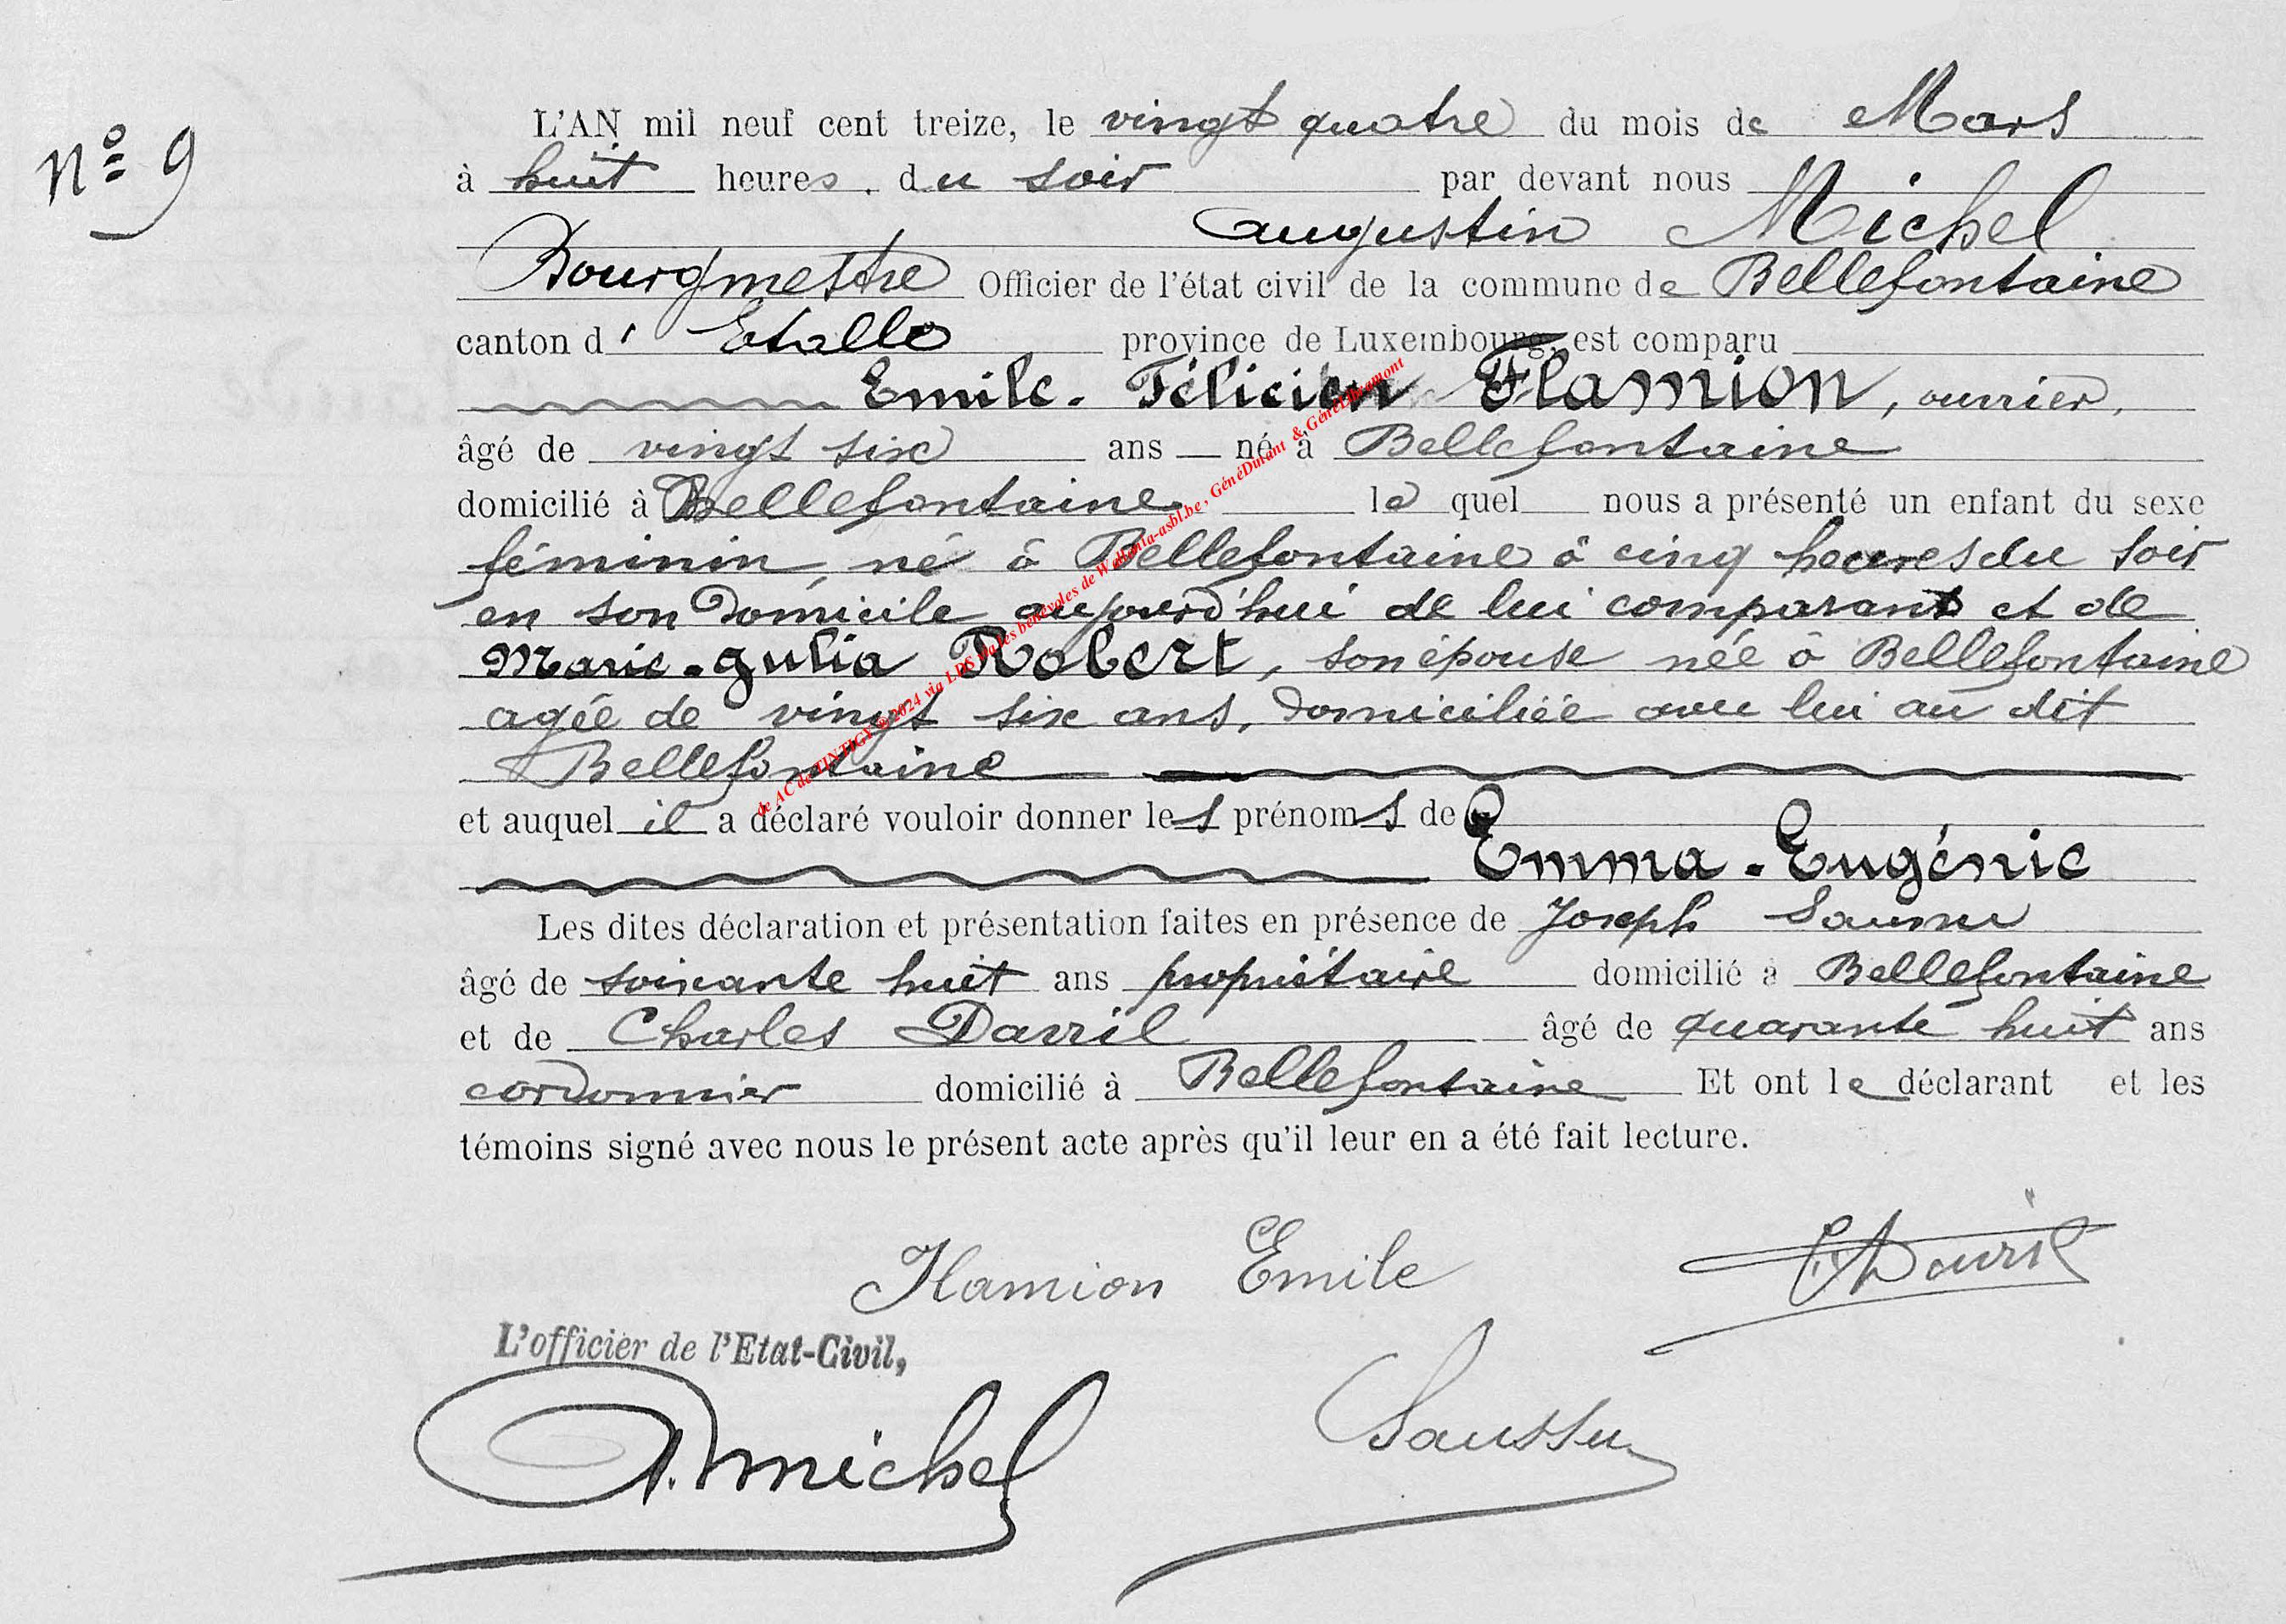 N° 9
L'AN mil neuf cent treize, le vingt quatre du mois de Mars
à huit heures du soir par devant nous
Augustin Michel
Bourgmestre Officier de l'état civil de la commune de Bellefontaine
canton d' Etalle province de Luxembourg, est comparu
Emile-Félicien Flamion, ouvrier,
âgé de vingt six ans né à Bellefontaine
domicilié à Bellefontaine le quel nous a présenté un enfant du sexe
féminin, né à Bellefontaine à cinq heures du soir
en son domicile aujourd'hui de lui comparant et de
Marie-Julia Robert, son épouse née à Bellefontaine
agée de vingt six ans, domiciliée avec lui au dit
Bellefontaine
et auquel il a déclaré vouloir donner les prénoms de
Emma-Eugénie
Les dites déclaration et présentation faites en présence de Joseph
âgé de soixante huit ans propriétaire domicilié à Bellefontaine
et de Charles Davril âgé de quarante huit ans
cordonnier domicilié à Bellefontaine Et ont le déclarant et les
témoins signé avec nous le présent acte après qu'il leur en a été fait lecture.
Flamion Emile
C. Davril
L'officier de l'Etat-Civil,
A. Michel
Saussu
de AC de TINTIGY © 2024 via LDS via les bénévoles de Wallonia-asbl.be, GénéDinant & GénéLibramont